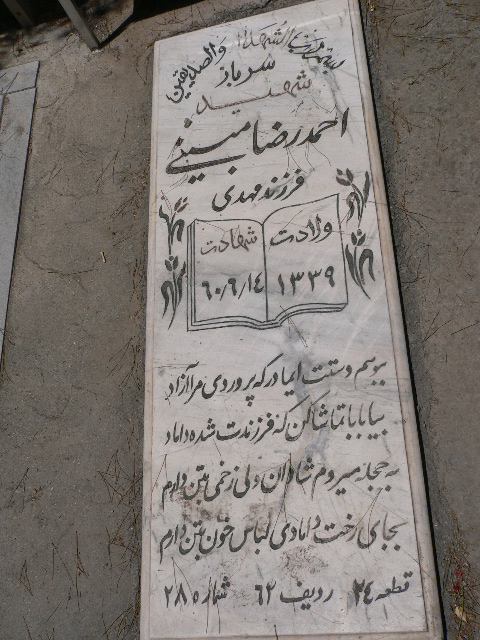 بسم رب الشهداء والصدیقین
سرباز
شهید
احمدرضا مبینی
فرزند مهدی
ولادت
۱۳۳۹
شهادت
۶۰/۶/۱۴
ببوسم دستت ایمادر که پروردی مرا آزاد
بیا بابا تماشا کن که فرزندت شده داماد
به حجله میروم شادان ولی زخمی بتن دارم
بجای رخت دامادی لباس خون بتن دارم
قطعه ۲۴ ردیف ۶۲ شماره ۲۸